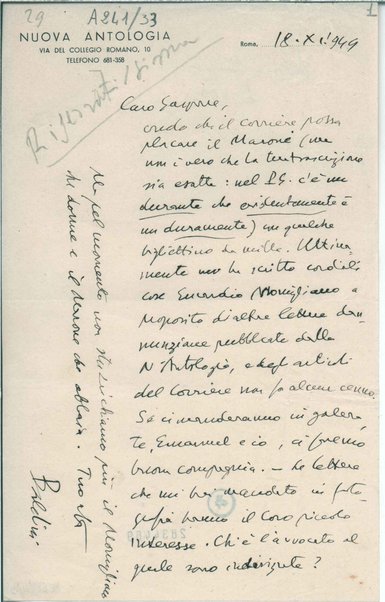 29 A241/33
1
NUOVA ANTOLOGIA
VIA DEL COLLEGIO ROMANO, 10
TELEFONO 681-358
Roma, 18.XI.1949
Caro Gaspare,
credo che il Corriere possa
placare il Marone (ma
non è vero che la tua trascrizione
sia esatta: nel P.S. c'è un
durante che evidentemente è
un duramente) con qualche
bigliettino da mille. Ultima-
mente non ha scritto cordiali
cose Emanuele Momigliano a
proposito di altre lettere dan-
nunziane pubblicate dalla
N. Antologia, e degli articoli
del Corriere non fa alcun cenno.
Se ci manderanno in galera
te, Emanuel e io, ci faremo
buona compagnia. — Le lettere
che mi hai mandato in foto-
grafia hanno il loro piccolo
interesse. Chi è l'avvocato al
quale sono indirizzate?
Ma pel momento non stuzzichiamo più il Momigliano
di donne e il Marone che abbaia. Tuo
Baldini